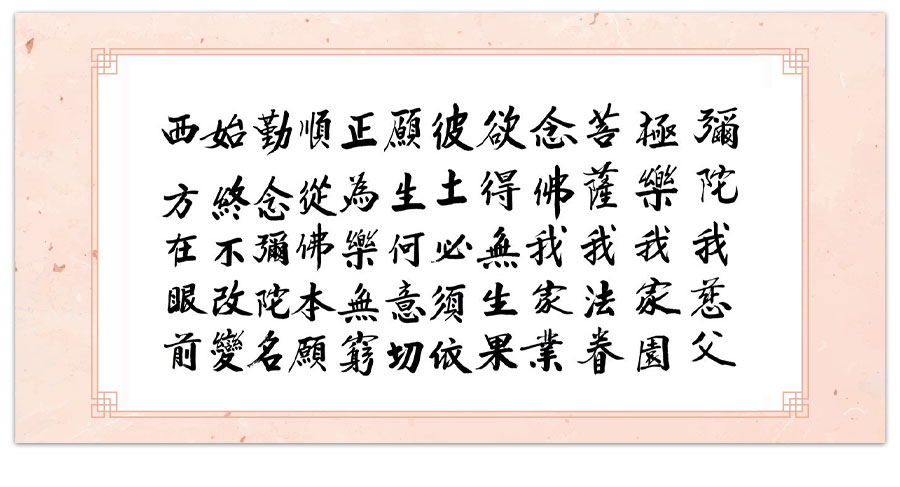 彌陀我慈父
極樂我家園
菩薩我法眷
念佛我家業
欲得無生果
彼土必須依
願生何意切
正為樂無窮
順從佛本願
勤念彌陀名
始終不改變
西方在眼前